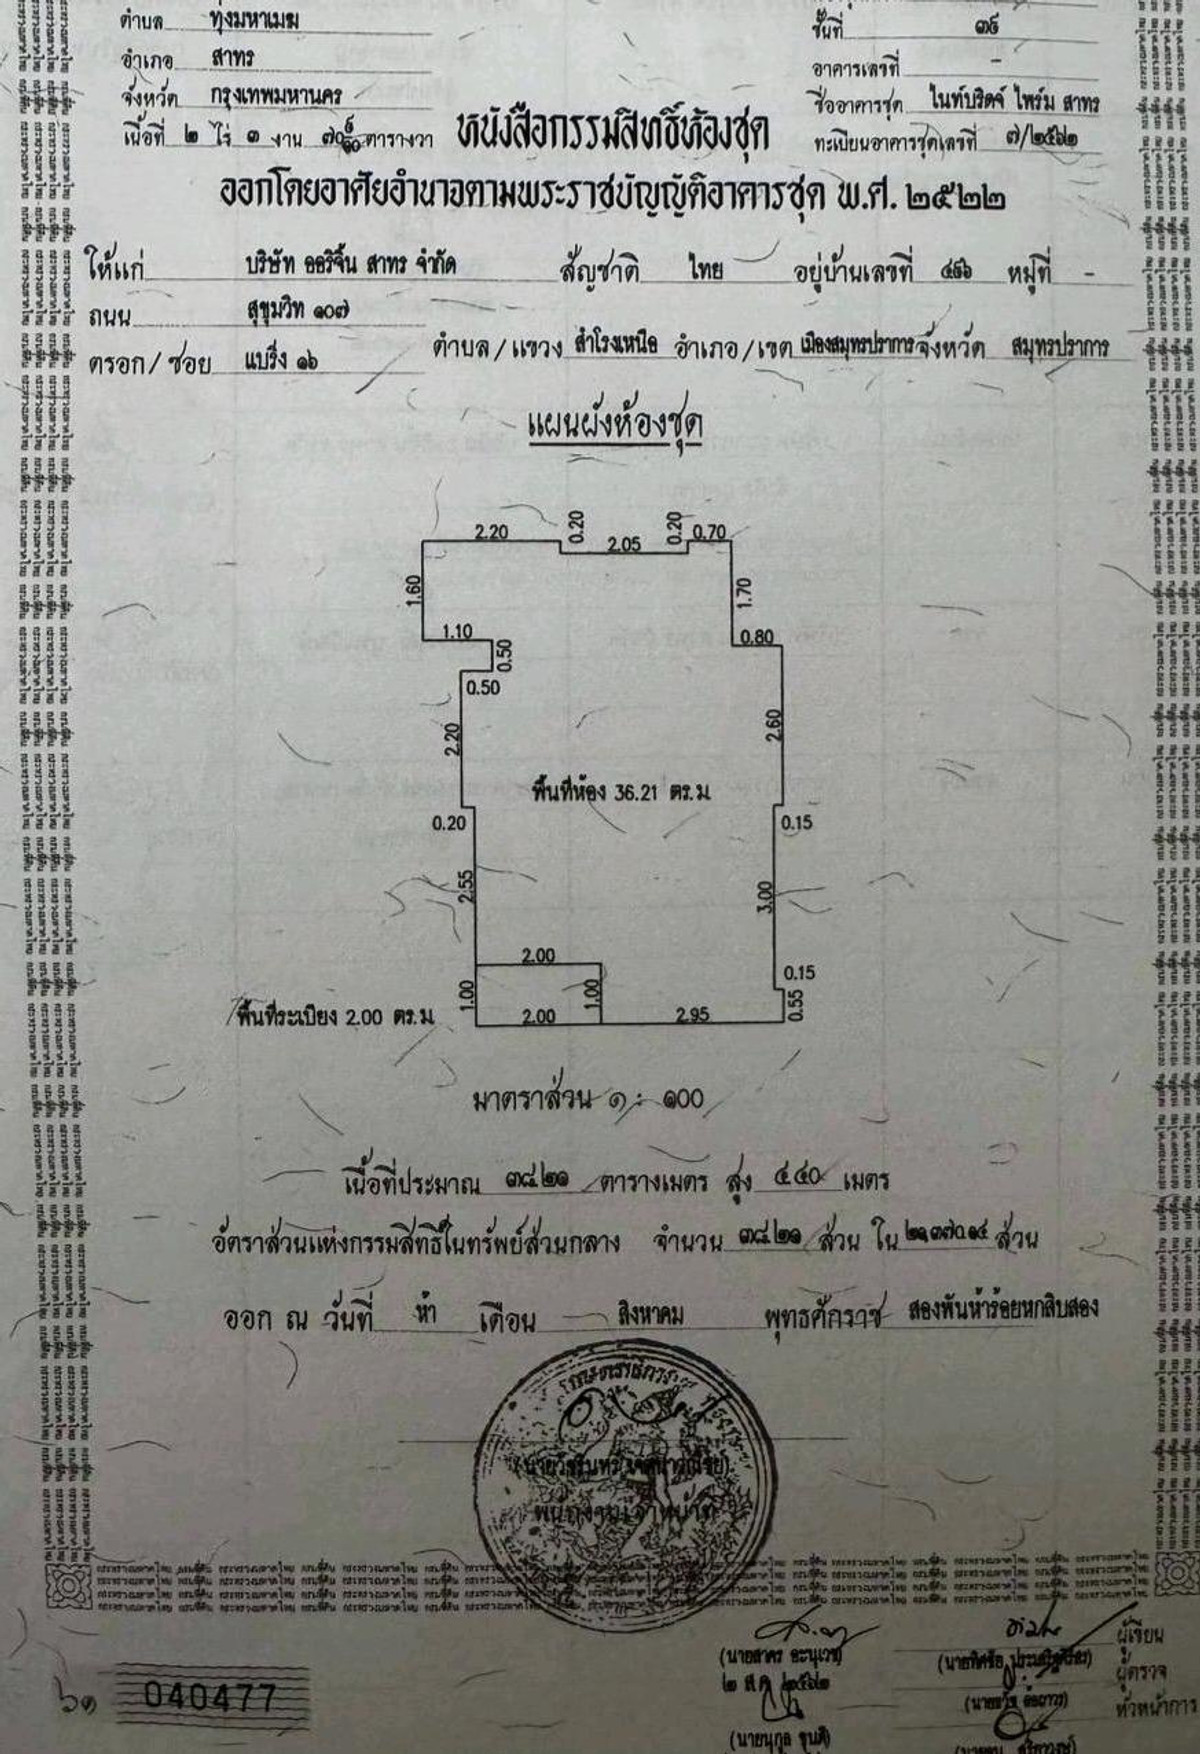 ตำบล ทุ่งมหาเมฆ
ชั้นที่ ๓๕
อำเภอ สาทร
อาคารเลขที่ -
จังหวัด กรุงเทพมหานคร
ชื่ออาคารชุด ไนท์บริดจ์ ไพร์ม สาทร
เนื้อที่ ๒ ไร่ ๑ งาน ตารางวา
หนังสือกรรมสิทธิ์ห้องชุด
ทะเบียนอาคารชุดเลขที่ ๗/๒๕๖๒
ออกโดยอาศัยอำนาจตามพระราชบัญญัติอาคารชุด พ.ศ. ๒๕๒๒
ให้แก่ บริษัท ออริจิ้น สาทร จำกัด สัญชาติ ไทย อยู่บ้านเลขที่ ๔๕๖ หมู่ที่ -
ถนน สุขุมวิท ๑๐๗
ตรอก/ซอย แบริ่ง ๑๖ ตำบล/แขวง สำโรงเหนือ อำเภอ/เขต เมืองสมุทรปราการ จังหวัด สมุทรปราการ
แผนผังห้องชุด
2.20 0.20 2.05 0.20 0.70
1.60 1.70
1.10 0.50 0.80
0.50
2.20 2.60
พื้นที่ห้อง 36.21 ตร.ม.
0.20 0.15
2.55 3.00
2.00
0.15
1.00 1.00 0.55
พื้นที่ระเบียง 2.00 ตร.ม. 2.00 2.95
มาตราส่วน ๑ : ๑๐๐
เนื้อที่ประมาณ ๓๘.๒๑ ตารางเมตร สูง ๔.๔๐ เมตร
อัตราส่วนแห่งกรรมสิทธิ์ในทรัพย์ส่วนกลาง จำนวน ๓๘.๒๑ ส่วน ใน ส่วน
ออก ณ วันที่ ห้า เดือน สิงหาคม พุทธศักราช สองพันห้าร้อยหกสิบสอง
พนักงานเจ้าหน้าที่
ผู้เขียน
(นายสาคร อะนุเวช)
๒ ส.ค. ๒๕๖๒
ผู้ตรวจ
หัวหน้าการ
๖๑ 040477
(นายนุกูล ขุนดี)